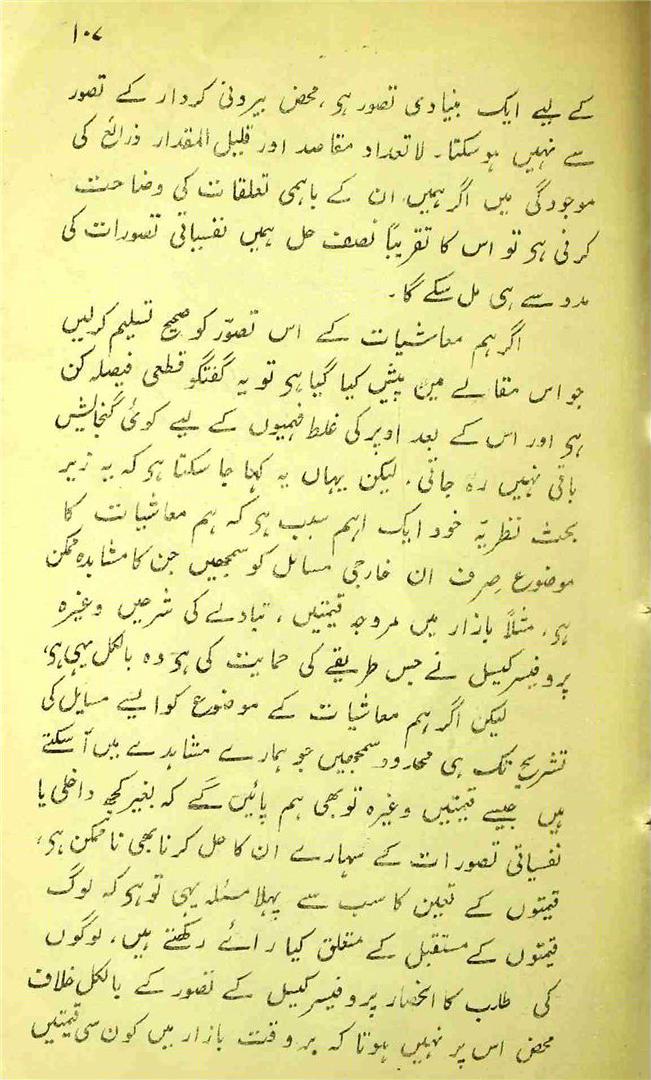 ۱۰۷
کے لیے ایک بنیادی تصور ہی، محض بیرونی کردار کے تصور
سے نہیں ہو سکتا۔ لا تعداد مقاصد اور قلیل المقدار ذرائع کی
موجودگی میں اگر ہمیں ان کے باہمی تعلقات کی وضاحت
کرنی ہی تو اس کا تقریباً نصف حل ہمیں نفسیاتی تصورات کی
مدد سے ہی مل سکے گا۔
اگر ہم معاشیات کے اس تصوّر کو صحیح تسلیم کرلیں
جو اس مقالے میں پیش کیا گیا ہی تو یہ گفتگو قطعی فیصلہ کن
ہی اور اس کے بعد اوپر کی غلط فہمیوں کے لیے کوئی گنجائش
باقی نہیں رہ جاتی۔ لیکن یہاں یہ کہا جا سکتا ہی کہ یہ زیر
بحث نظریّہ خود ایک اہم سبب ہی کہ ہم معاشیات کا
موضوع صِرف ان خارجی مسائل کو سمجھیں جن کا مشاہدہ ممکن
ہی، مثلاً بازار میں مروجہ قیمتیں، تبادلے کی شرحیں وغیرہ
پروفیسر کیسل نے جس طریقے کی حمایت کی ہی وہ بالکل یہی ہی،
لیکن اگر ہم معاشیات کے موضوع کو ایسے مسایل کی
تشریح تک ہی محدود سمجھیں جو ہمارے مشاہدے میں آ سکتے
ہیں جیسے قیمتیں وغیرہ تو بھی ہم پائیں گے کہ بغیر کچھ داخلی یا
نفسیاتی تصورات کے سہارے ان کا حل کرنا بھی نا ممکن ہی،
قیمتوں کے تعین کا سب سے پہلا مسئلہ یہی تو ہی کہ لوگ
قیمتوں کے مستقبل کے متعلق کیا رائے رکھتے ہیں، لوگوں
کی طلب کا انحصار پروفیسر کیسل کے تصور کے بالکل خلاف
محض اس پر نہیں ہوتا کہ بر وقت بازار میں کون سی قیمتیں